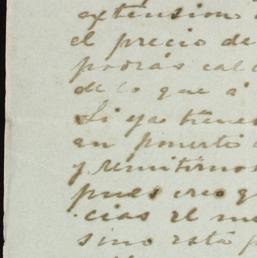 extension
el precio de
podras cal
de lo que a
Si ya tienes
en ponerte
y remitirnos
pues creo q
cias el me
sino está p